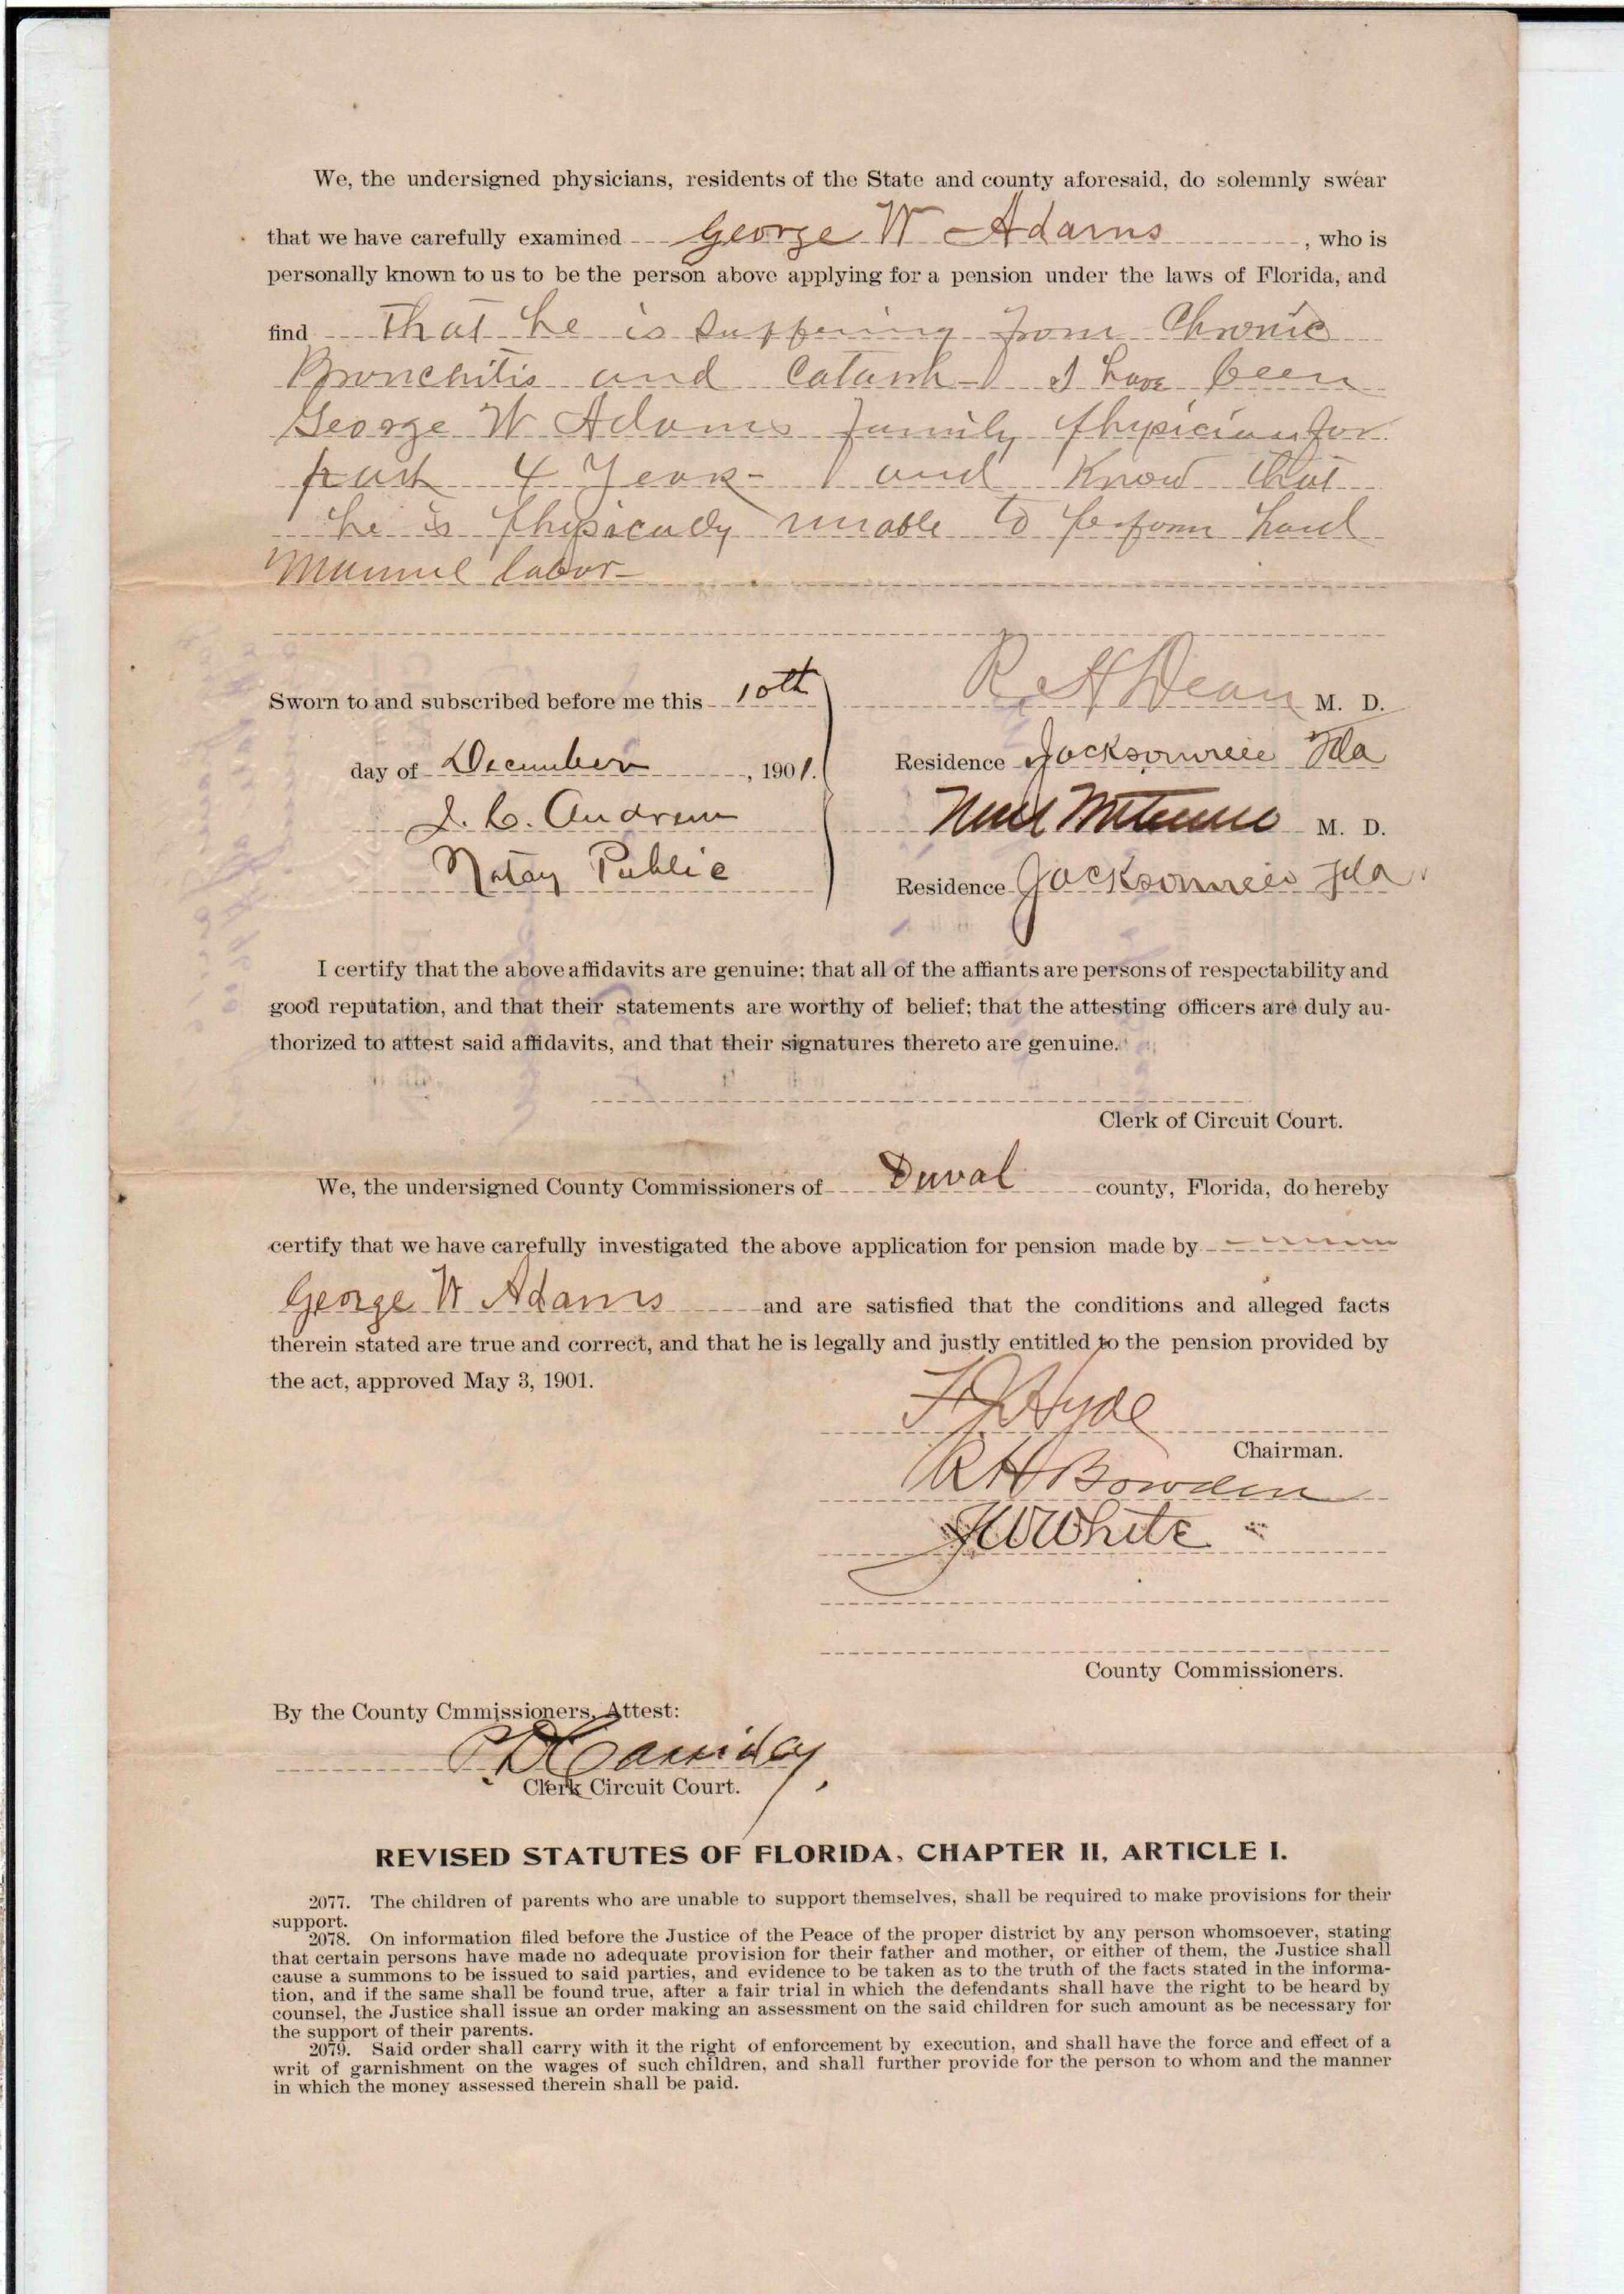 We, the undersigned physicians, residents of the State and county aforesaid, do solemnly swear
that we have carefully examined George W Adams, who is
personally known to us to be the person above applying for a pension under the laws of Florida, and
find that he is suffering from Chronic
Bronchitis and Catarrh - I have been
George W Adams family Physician for
past 4 Years - and Know that
he is Physically unable to perform hard
Manuel labor -
Sworn to and subscribed before me this 10th
day of December, 1901.
J. C. Andrew
Notary Public
R H Dean M. D.
Residence Jacksonville Fla
M. D.
Residence Jacksonville Fla
I certify that the above affidavits are genuine; that all of the affiants are persons of respectability and
good reputation, and that their statements are worthy of belief; that the attesting officers are duly au-
thorized to attest said affidavits, and that their signatures thereto are genuine.
Clerk of Circuit Court.
We, the undersigned County Commissioners of Duval county, Florida, do hereby
certify that we have carefully investigated the above application for pension made by
George W Adams and are satisfied that the conditions and alleged facts
therein stated are true and correct, and that he is legally and justly entitled to the pension provided by
the act, approved May 3, 1901.
F J Hyde
Chairman.
R H Bowden
J W White
County Commissioners.
By the County Cmmissioners, Attest:
P. D. Cassidey
Clerk Circuit Court.
REVISED STATUTES OF FLORIDA, CHAPTER II, ARTICLE I.
2077. The children of parents who are unable to support themselves, shall be required to make provisions for their
support.
2078. On information filed before the Justice of the Peace of the proper district by any person whomsoever, stating
that certain persons have made no adequate provision for their father and mother, or either of them, the Justice shall
cause a summons to be issued to said parties, and evidence to be taken as to the truth of the facts stated in the informa-
tion, and if the same shall be found true, after a fair trial in which the defendants shall have the right to be heard by
counsel, the Justice shall issue an order making an assessment on the said children for such amount as be necessary for
the support of their parents.
2079. Said order shall carry with it the right of enforcement by execution, and shall have the force and effect of a
writ of garnishment on the wages of such children, and shall further provide for the person to whom and the manner
in which the money assessed therein shall be paid.